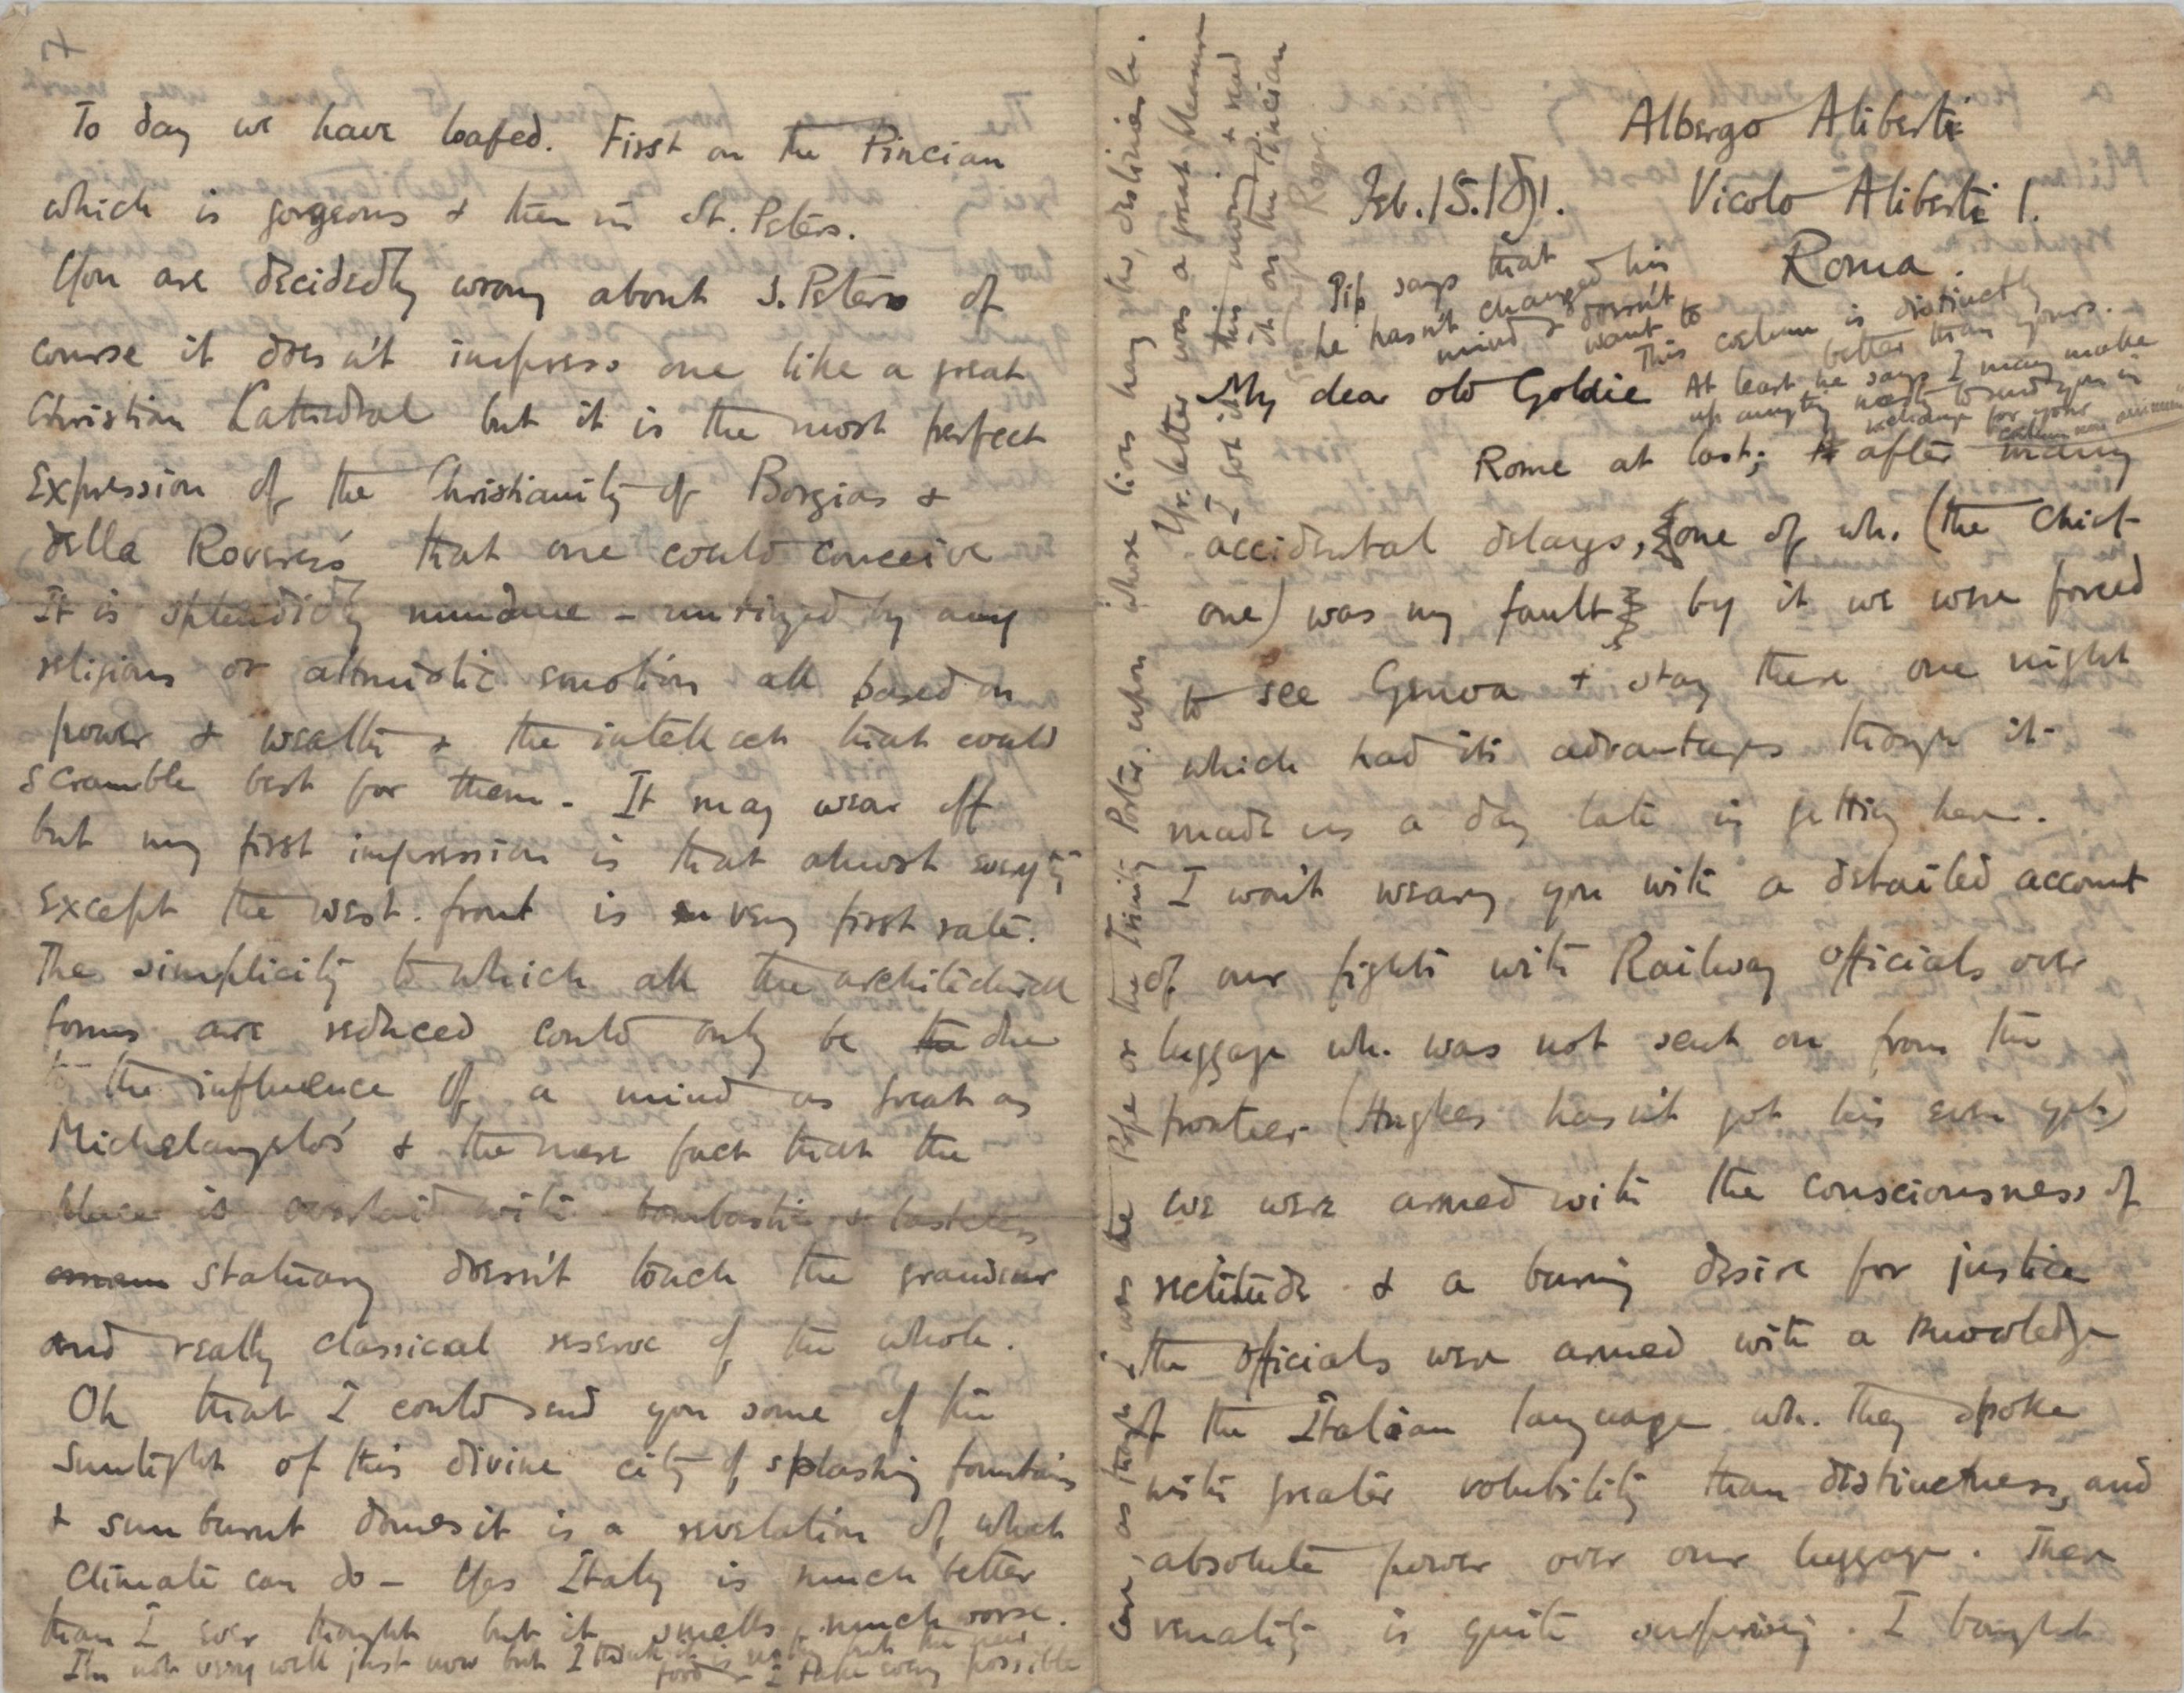 Albergo Aliberti
Feb. 15. 1891. Vicolo Aliberti 1.
Roma.
Pip says that
he hasn't changed his
mind & doesn't
want to
This column is distinctly
better than yours.
At least he says I may make
up anything next to send you in
exchange for your
My dear old Goldie
Rome at last; after many
accidental delays, one of wh. (the chief
one) was my fault by it we were forced
to see Genoa & stay there one night
which had its advantages though it
made us a day late in getting here.
I won't weary you with a detailed account
of our fights with Railway officials over
luggage wh. was not sent on from the
frontier (Hughes hasn't got his even yet)
we were armed with the consciousness of
rectitude & a burning desire for justice
the officials were armed with a knowledge
of the Italian language wh. they spoke
with greater volubility than distinctness, and
absolute power over our luggage. Their
venality is quite surprising. I bought
4
To day we have loafed. First on the Pincian
which is gorgeous & then in St. Peters.
You are decidedly wrong about S. Peters of
course it does n't impress one like a great
Christian Cathedral but it is the most perfect
Expression of the Christianity of Borgias &
della Rovere's that one could conceive
It is splendidly mundane – untinged by any
religious or altruistic emotion all based on
power & wealth & the intellect that could
scramble best for them. It may wear off
but my first impression is that almost everyth
Except the west. front is very first rate.
The simplicity to which all the architectural
forms are reduced could only be due
to the influence of a mind as great as
Michelangelo's & the mere fact that the
place is overlaid with bombastic & tasteless
statuary doesn't touch the grandeur
and really classical reserve of the whole.
Oh that I could send you some of the
Sunlight of this divine city of splashing fountains
& sun burnt domes it is a revelation of what
Climate can do – Yes Italy is much better
than I ever thought but it smells much worse.
I'm not very well just now but I think it is only the new
food & I take every possible
care, as though I was the Pope or the Trinity Porter, upon whose lions hang mighty destinies.
Yr. letter was a great pleasure
I got it this morng & read
it on the Pincian
Roger.